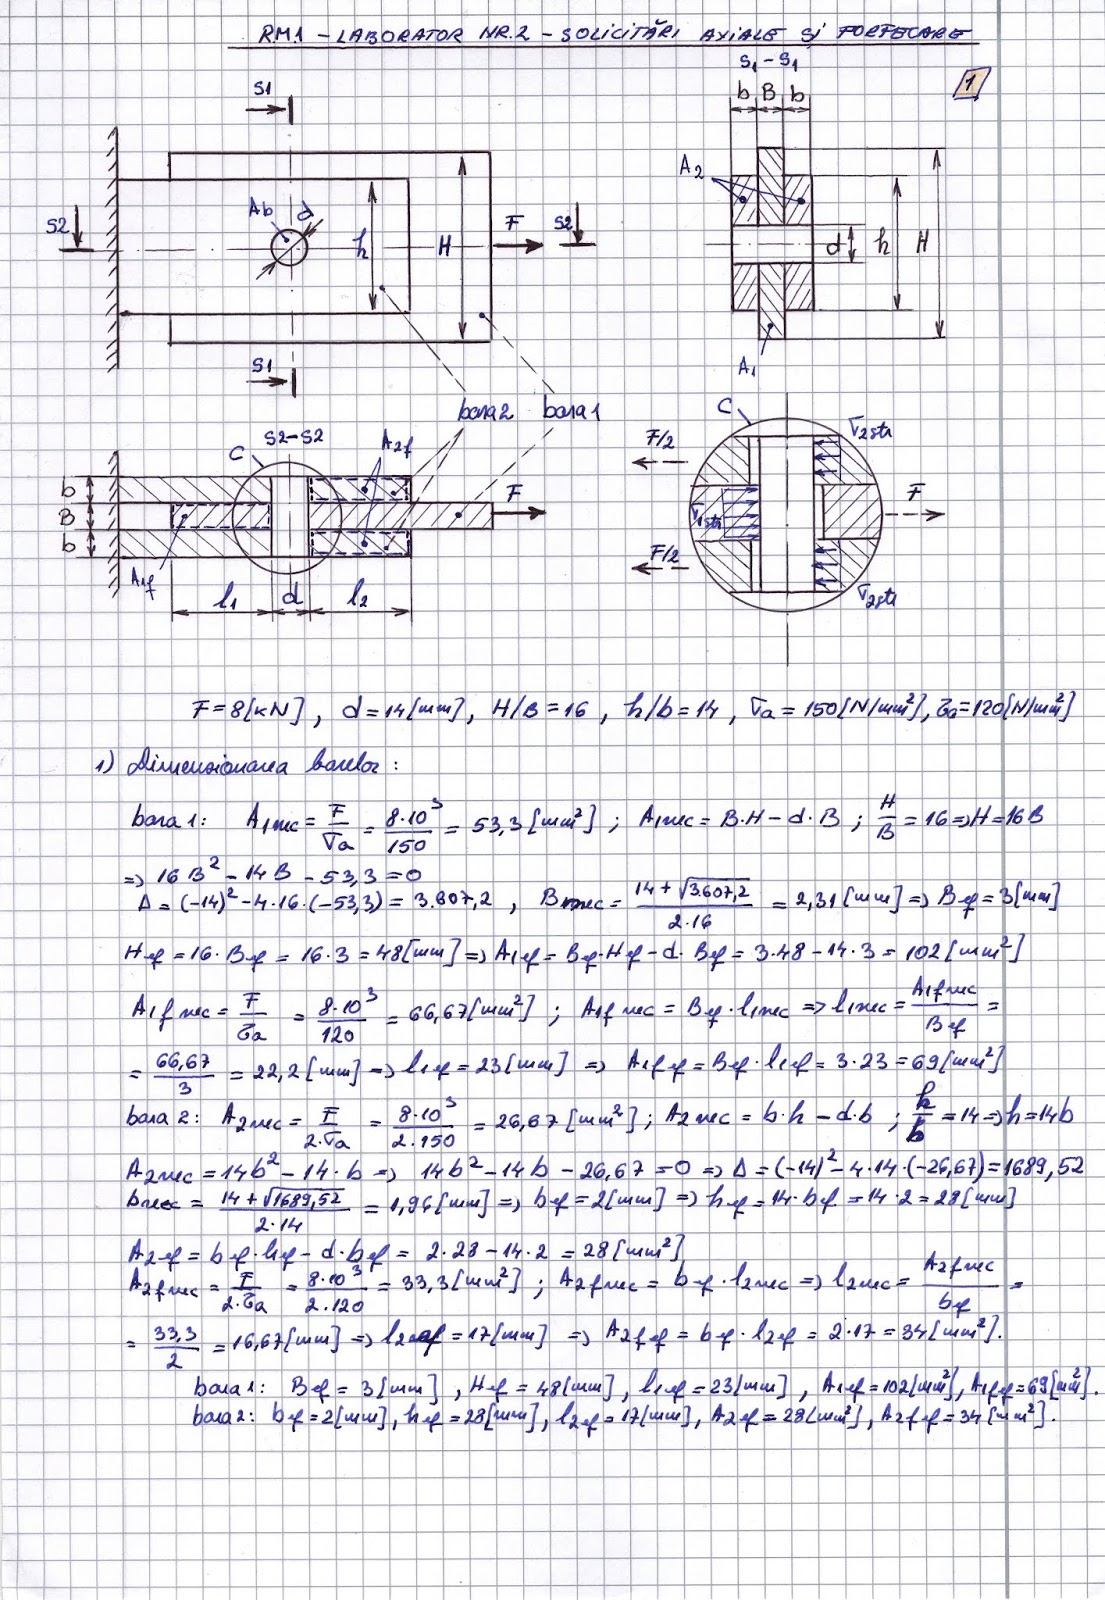 RM1 - LABORATOR NR.2 - SOLICITĂRI AXIALE ȘI FORFECARE
1
S1
S1 - S1
b B b
A2
Ab d
S2 h H F S2
d h H
S1
A1
bara 2 bara 1
C S2-S2 A2f
b B b
F
A1f
l1 d l2
C
F/2 σ2str
σ1str F
F/2 σ2str
F = 8[kN] , d = 14[mm] , H/B = 16 , h/b = 14 , σa = 150[N/mm²], τa = 120[N/mm²]
1) Dimensionarea barelor :
bara 1: A1nec = F/σa = 8·10³/150 = 53,3[mm²] ; A1nec = B·H - d·B ; H/B = 16 ⇒ H = 16B
⇒ 16B² - 14B - 53,3 = 0
Δ = (-14)² - 4·16·(-53,3) = 3.607,2 , Bnec = (14 + √3.607,2)/(2·16) = 2,31[mm] ⇒ Bef = 3[mm]
Hef = 16·Bef = 16·3 = 48[mm] ⇒ A1ef = Bef·Hef - d·Bef = 3·48 - 14·3 = 102[mm²]
A1f nec = F/τa = 8·10³/120 = 66,67[mm²] ; A1f nec = Bef·l1nec ⇒ l1nec = A1f nec/Bef =
= 66,67/3 = 22,2[mm] ⇒ l1ef = 23[mm] ⇒ A1f ef = Bef·l1ef = 3·23 = 69[mm²]
bara 2: A2nec = F/2·σa = 8·10³/2·150 = 26,67[mm²] ; A2nec = b·h - d·b ; h/b = 14 ⇒ h = 14b
A2nec = 14b² - 14·b ⇒ 14b² - 14b - 26,67 = 0 ⇒ Δ = (-14)² - 4·14·(-26,67) = 1689,52
bnec = (14 + √1689,52)/(2·14) = 1,96[mm] ⇒ bef = 2[mm] ⇒ hef = 14·bef = 14·2 = 28[mm]
A2ef = bef·hef - d·bef = 2·28 - 14·2 = 28[mm²]
A2f nec = F/2·τa = 8·10³/2·120 = 33,3[mm²] ; A2f nec = bef·l2nec ⇒ l2nec = A2f nec/bef =
= 33,3/2 = 16,67[mm] ⇒ l2ef = 17[mm] ⇒ A2f ef = bef·l2ef = 2·17 = 34[mm²].
bara 1: Bef = 3[mm] , Hef = 48[mm] , l1ef = 23[mm] , A1ef = 102[mm²], A1f ef = 69[mm²].
bara 2: bef = 2[mm], hef = 28[mm], l2ef = 17[mm], A2ef = 28[mm²], A2f ef = 34[mm²].